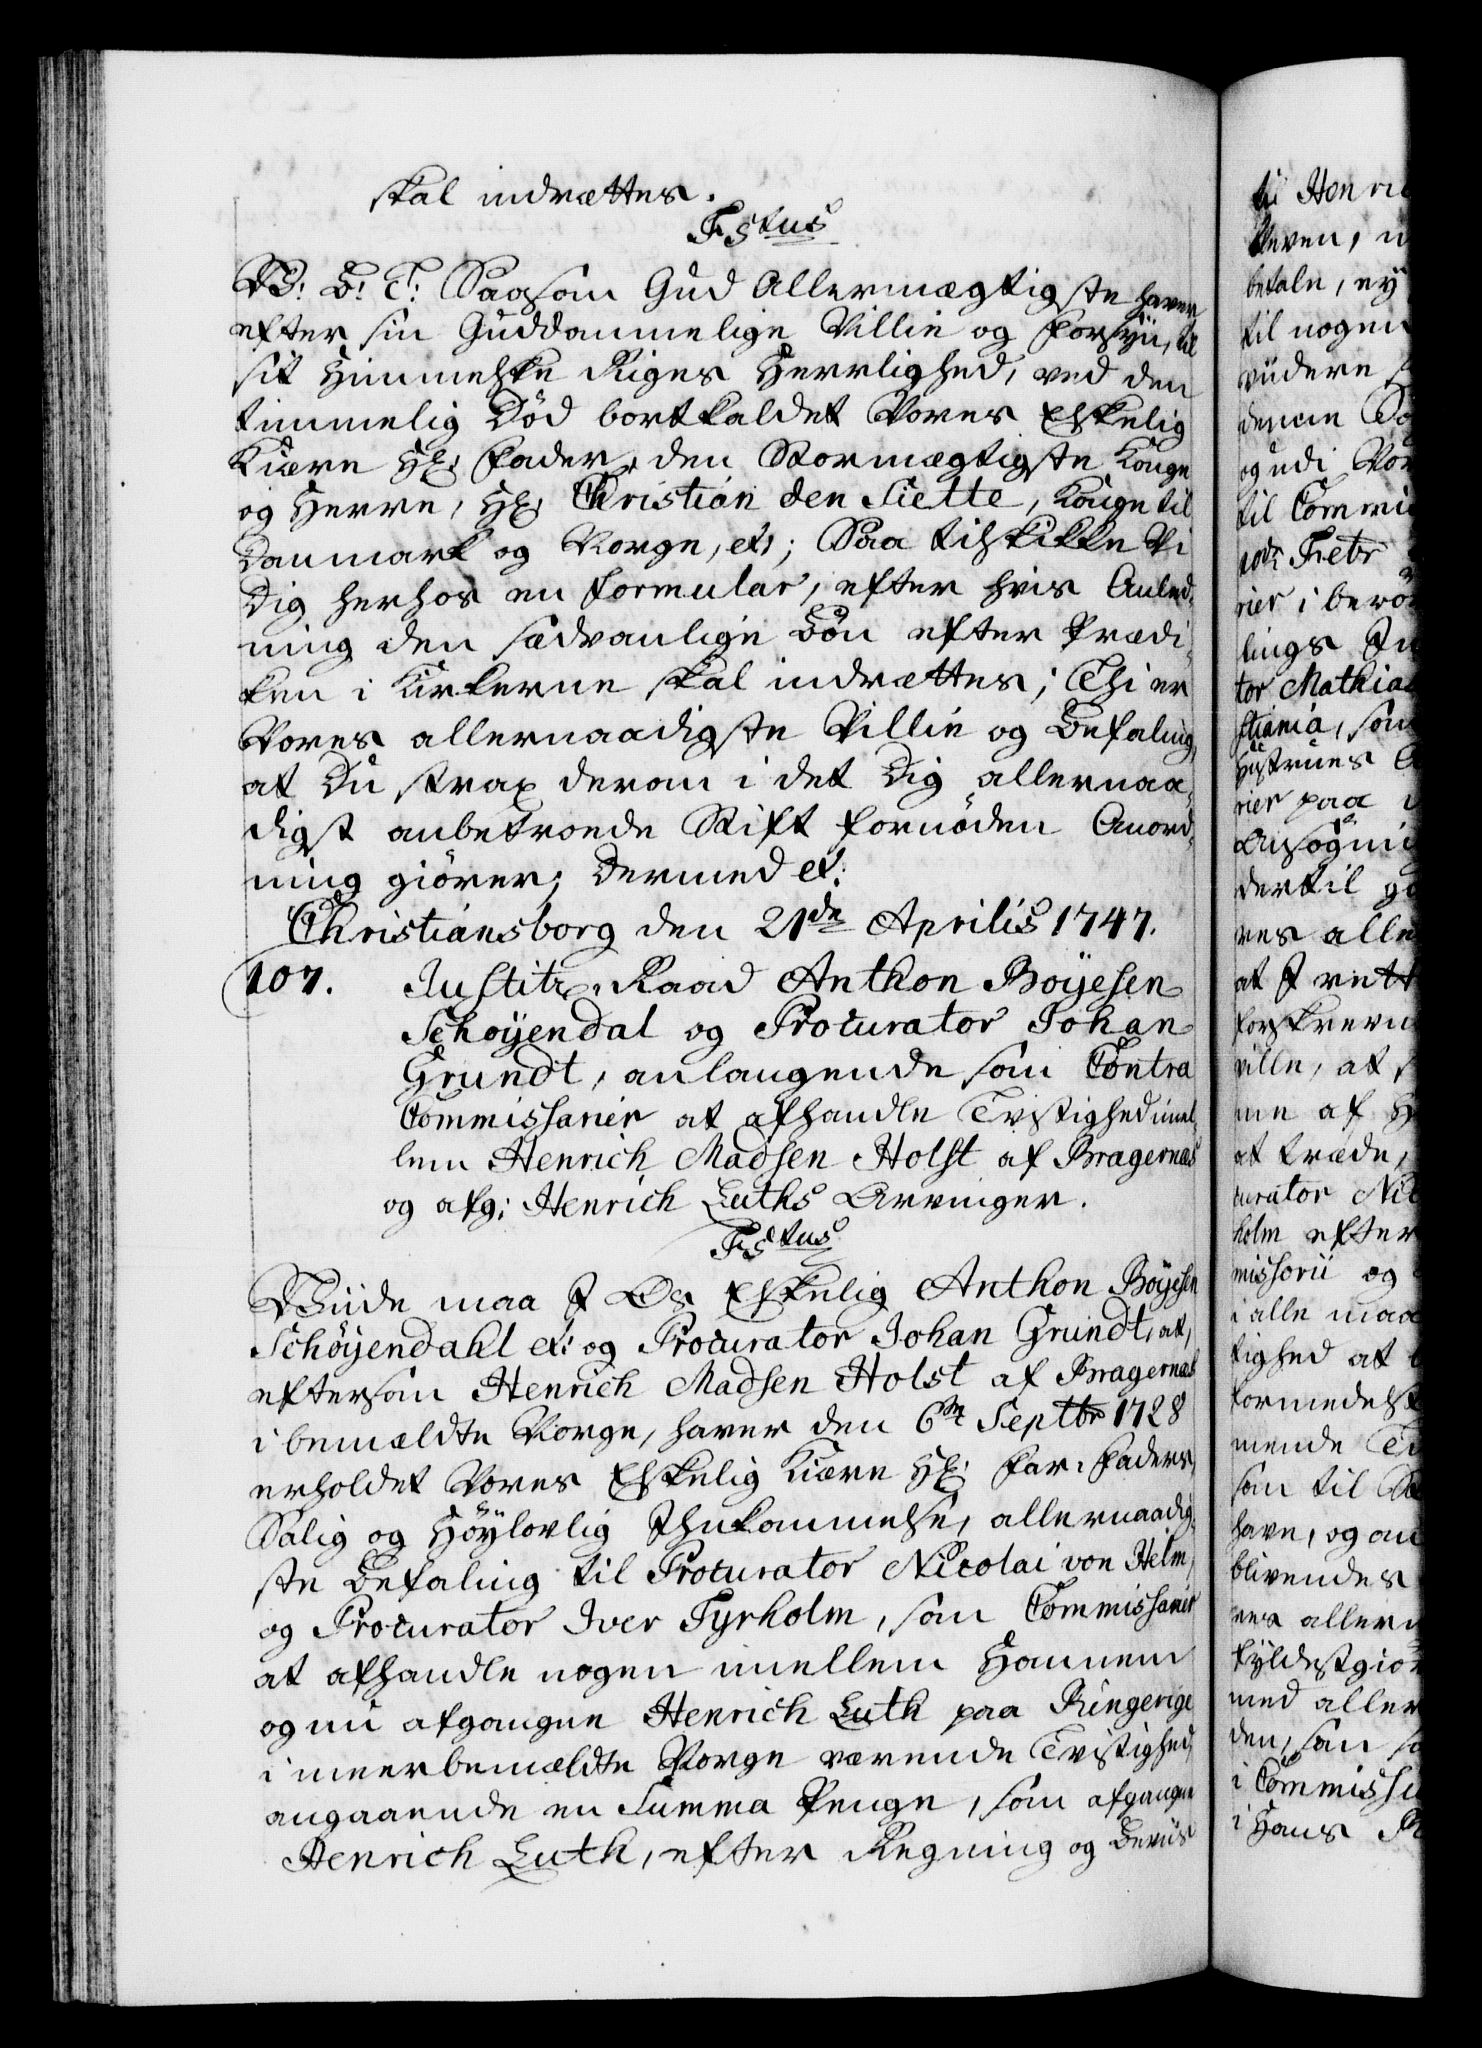 skal indrættes.
F. S. tus
V: B: T: Saasom Gud Allermægtigste haver
efter sin Guddommelige Villie og Forsyn, til
sit Himmelske Riges Herrlighed, ved den
timmelig Død bortkaldet Vores Elskelig
Kiære Hr: Fader, den Stormægtigste Konge
og Herre, Hr: Christian den Siette, Konge til
Danmark og Norge, etc; Saa tilskikke Vi
Dig herhos en Formular, efter hvis Anled-
ning den sædvanlige Bøn efter Prædi-
ken i Kirkerne skal indrættes; Thi er
Vores allernaadigste Villie og Befaling,
at Du strax derom i det Dig allernaa-
digst anbetroede Stift fornøden Anord-
ning giører; Dermed etc:
Christiansborg den 21de Aprilis 1747.
107. Justitz-Raad Anthon Böyesen
Schöyendal og Procurator Johan
Grundt, anlangende som Contra
Commissarier at afhandle Tvistighed imel-
lem Henrich Madsen Holst af Bragernæs
og afg: Henrich Luths Arvinger.
F. S. tus
Viide maa I Os Elskelig Anthon Böyesen
Schöyendahl etc: og Procurator Johan Grundt, at,
eftersom Henrich Madsen Holst af Bragernæs
i bemældte Norge, haver den 6te Septbr 1728
erholdet Vores Elskelig Kiære Hr: Far-Faders,
Salig og Höylovlig Ihukommelse, allernaadig-
ste Befaling til Procurator Nicolai von Helm,
og Procurator Iver Tyrholm, som Commissarier
at afhandle nogen imellem Hannem
og nu afgangne Henrich Luth paa Ringerige
i meerbemældte Norge værende Tvistighed,
angaaende en Summa Penge, som afgangne
Henrich Luth, efter Regning og Beviis
til Henric
betale, ey
til nogen
viidere
denne
og udi
til Commi
Febr
rier i berö
lings
tor Mathia
stiania, som
rier paa
Ansøgni
dertil
res alle
at I rett
ville, at
me af
at træde,
curator Nic
holm efter
missorii og
i alle maa
tighed at
formedelst
mende
som til
have, og
blivendes
fyldestgiør
med aller
den, som
i Commissi
i Hans